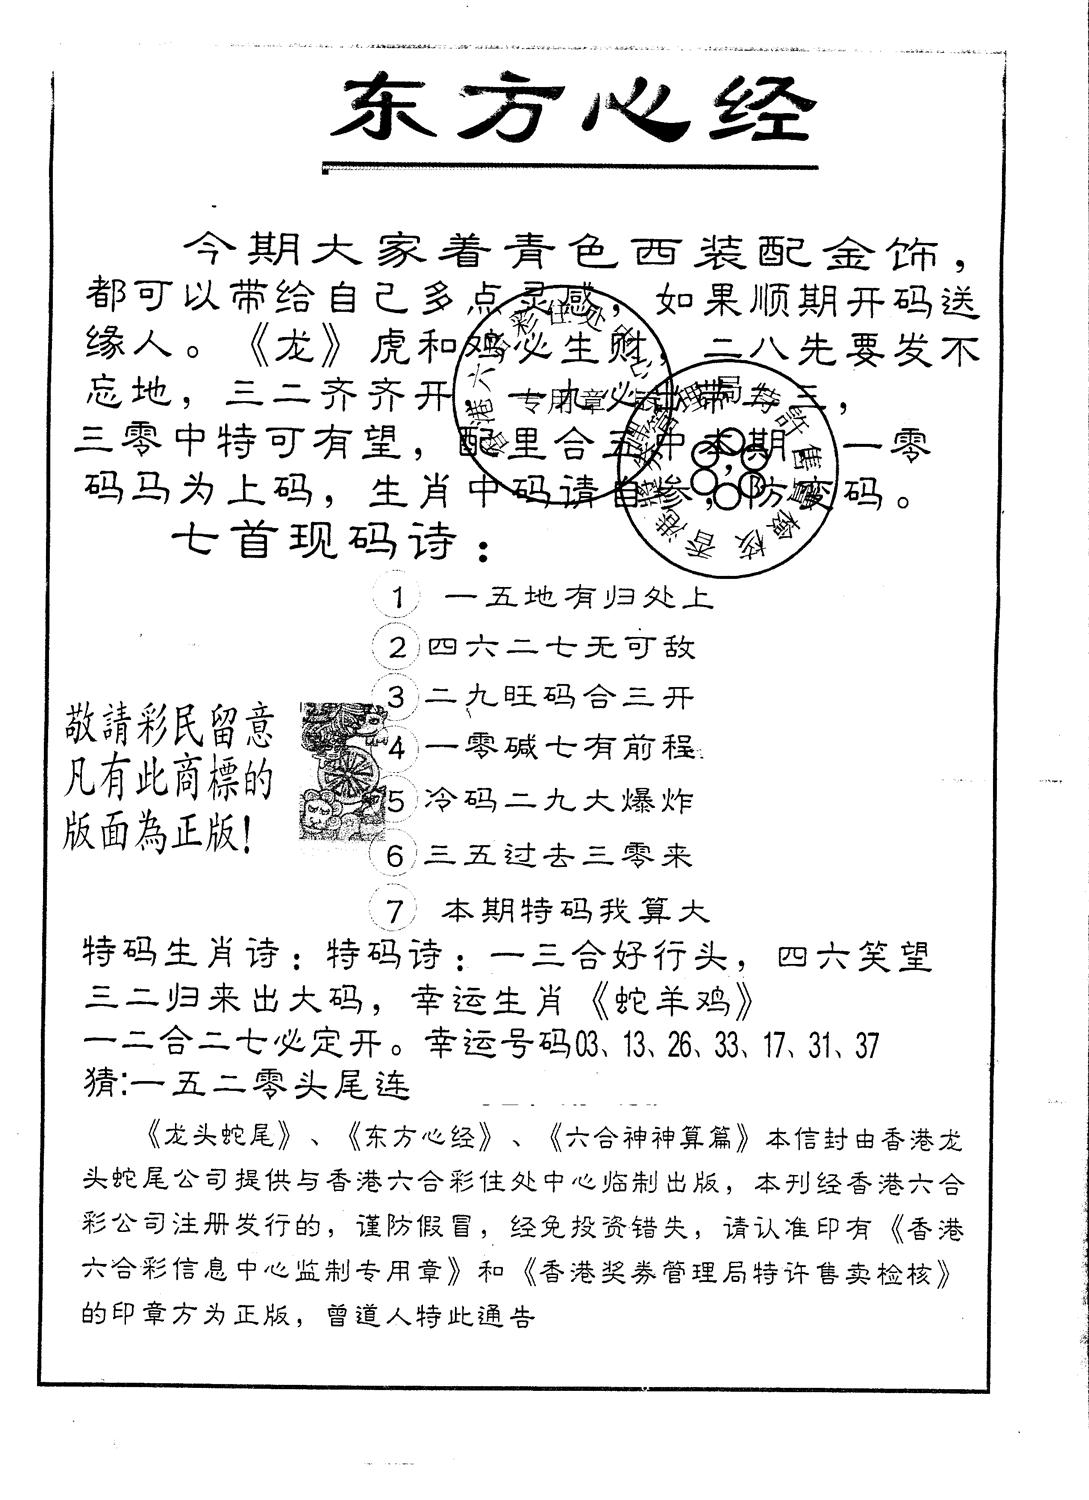 东方心经
今期大家着青色西装配金饰，
都可以带给自己多点灵感，如果顺期开码送
缘人。《龙》虎和鸡必生财，二八先要发不
忘地，三二齐齐开，一九必出带二三，
三零中特可有望，配里合五中本期，一零
码马为上码，生肖中码请自参，防变码。
七首现码诗：
1 一五地有归处上
2 四六二七无可敌
3 二九旺码合三开
4 一零碱七有前程
5 冷码二九大爆炸
6 三五过去三零来
7 本期特码我算大
敬請彩民留意
凡有此商標的
版面為正版！
特码生肖诗：特码诗：一三合好行头，四六笑望
三二归来出大码，幸运生肖《蛇羊鸡》
一二合二七必定开。幸运号码03、13、26、33、17、31、37
猜:一五二零头尾连
《龙头蛇尾》、《东方心经》、《六合神神算篇》本信封由香港龙
头蛇尾公司提供与香港六合彩住处中心临制出版，本刊经香港六合
彩公司注册发行的，谨防假冒，经免投资错失，请认准印有《香港
六合彩信息中心监制专用章》和《香港奖券管理局特许售卖检核》
的印章方为正版，曾道人特此通告
香港六合彩住处中心
专用章
香港獎券管理局特許售賣檢核